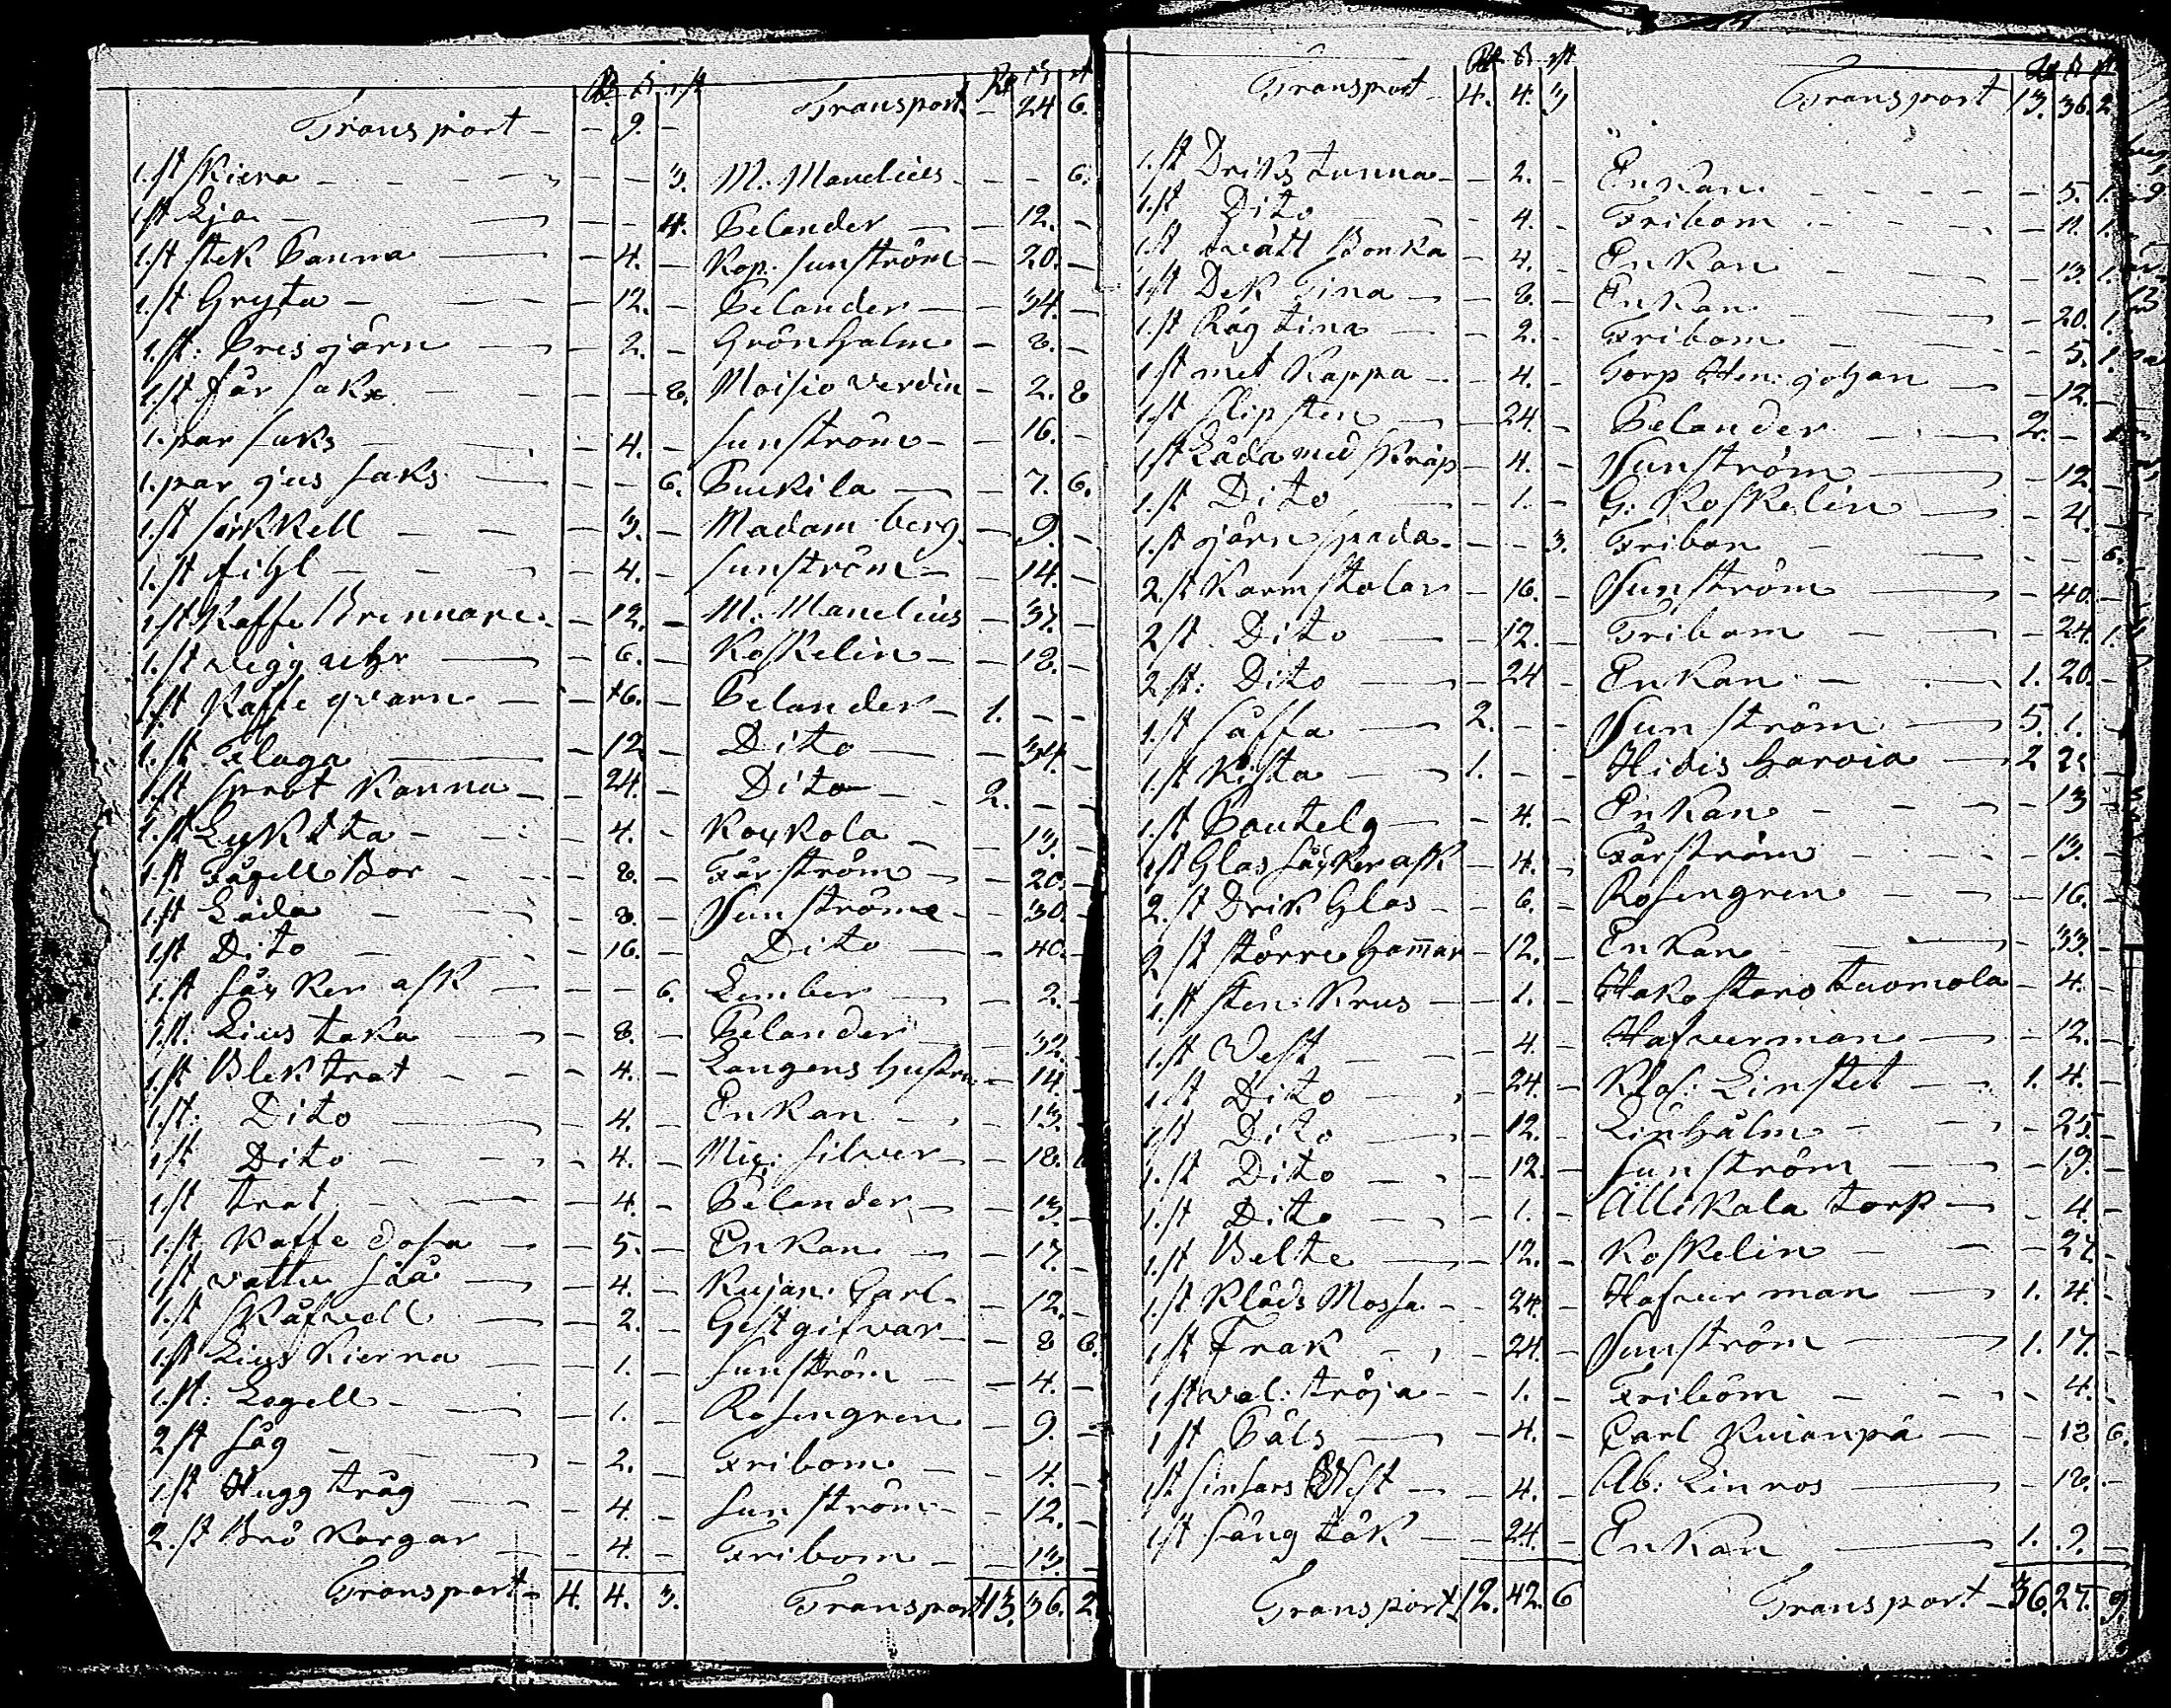 Rd ß rst Rd ß rst
Transport - - 9. - Transport - 24 6.
1. st Kierna - - - 3. M. Manelius - - 6.
1 st Lja - - - 4. Selander - 12. -
1. st stek Panna - 4. - Kop. Sunström - 20. -
1. st Gryta - 12. - Selander - 34. -
1. st: Pres järn - 2. - Grönhalm - 8. -
1. st får sax - - 8. Moisio verdin - 2. 8
1. par saks - 4. - Sunström - 16. -
1. par jus saks - - 6. Puckila - 7. 6.
1. st sirkkell - 3. - Madam berg - 9. -
1. st fihl - 4. - Sunström - 14. -
1 st Kaffe Brennare - 12. - M. Manelius - 37. -
1. st vegg uhr - 6. - Koskelin - 18. -
1. st Kaffe qvarn - 16. - Selander 1. - -
1. st Flaga - 12 - Dito - 34. -
1. st sprot Kanna - 24. - Dito 2. - -
1. st Lyktta - 4. - Koxkola - 13. -
1. st Fågell Bor - 8. - Färström - 20. -
1 st Låda - 8. - Sunström - 30. -
1. st Dito - 16. - Dito - 40. -
1. st såxker ask - - 6. Lember - 2. -
1. st: Lius taka - 8. - Selander - 32. -
1. st Blek trat - 4. - Langens hustru - 14. -
1. st: Dito - 4. - Enkan - 13. -
1 st Dito - 4. - Mig: Silver - 18.
1 st trat - 4. - Selander - 13. -
1. st Kaffe dosa - 5. - Enkan - 17. -
1 st vattu såå - 4. - Kujan: Carl - 12. -
1. st Skåfvell - 2. - Gestgifvar - 8 6.
1. st Lius Kierna - 1. - Sunström - 4. -
1. st: Logell - 1. - Rosengren - 9. -
2 st såg - 2. - Fribom - 4. -
1. st Hugg tråg - 4. - Sunström - 12. -
2. st Brö Korgar - 4. - Fribom - 13. -
Transport 4. 4. 3. Transport 13. 36. 2
Rd ß rst Rd ß rst
Transport 4. 4. 3 Transport 13. 36. 2.
1. st Driks tunna - 2. - Enkan - 5. 1.
1. st Dito - 4. - Fribom - 11. 1.
1. st tvätt Bonka - 4. - Enkan - 13. 1.
1 st Dek Tina - 8. - Enkan - 20. 1.
1. st Råg tina - 2. - Fribom - 5. 1.
1 st met Kappa - 4. - Torp Hen: johan - 12. -
1. st slip sten - 24. - Selander 2. -
1 st Låda med skrap - 4. - Sunström - 12. -
1. st Dito - 1. - G: Koskelin - 4. -
1. st järn spada - - 3. Fribon - - 6.
2 st Karm stolar - 16. - Sunström - 40. -
2 st. Dito - 12. - Fribom - 24. 1.
2 st: Dito - 24 - Enkan 1. 20. -
1. st såffa 2. - - Sunström 5. 1. -
1. st Kista 1. - - Hidis harvia 2 22 -
1. st Pautelg - 4. - Enkan - 13 -
1 st Glas såxker ask - 4. - Färström - 13. -
2. st Drik Glas - 6. - Rosengren - 16. -
2 st större hammar - 12. - Enkan - 33. -
1. st sten Krus - 1. - Hako staro tuomola - 4. -
1. st Vest - 4. - Hafverman - 12. -
1 st Dito - 24. - Klas: Linstet 1. 4. -
1 st Dito - 12. - Linhålm - 25. -
1. st Dito - 12. - Sunström - 19. -
1. st Dito - 1. - Allikala torp - 4. -
1. st Belte - 12. - Koskelin - 27. -
1. st Kläds Mossa - 24. - Hafverman 1. 4. -
1 st Frak - 24. - Sunström 1. 17. -
1 st val: tröja - 1. - Friböm - 4. -
1 st Päls - 4. - Carl Kuianpä - 18 6.
1 st sinsars West - 4. - Ab: Linros - 18. -
1 st säng täk - 24. - Enkan 1. 9. -
Transport 12. 42. 6 Transport 36. 27. 9.